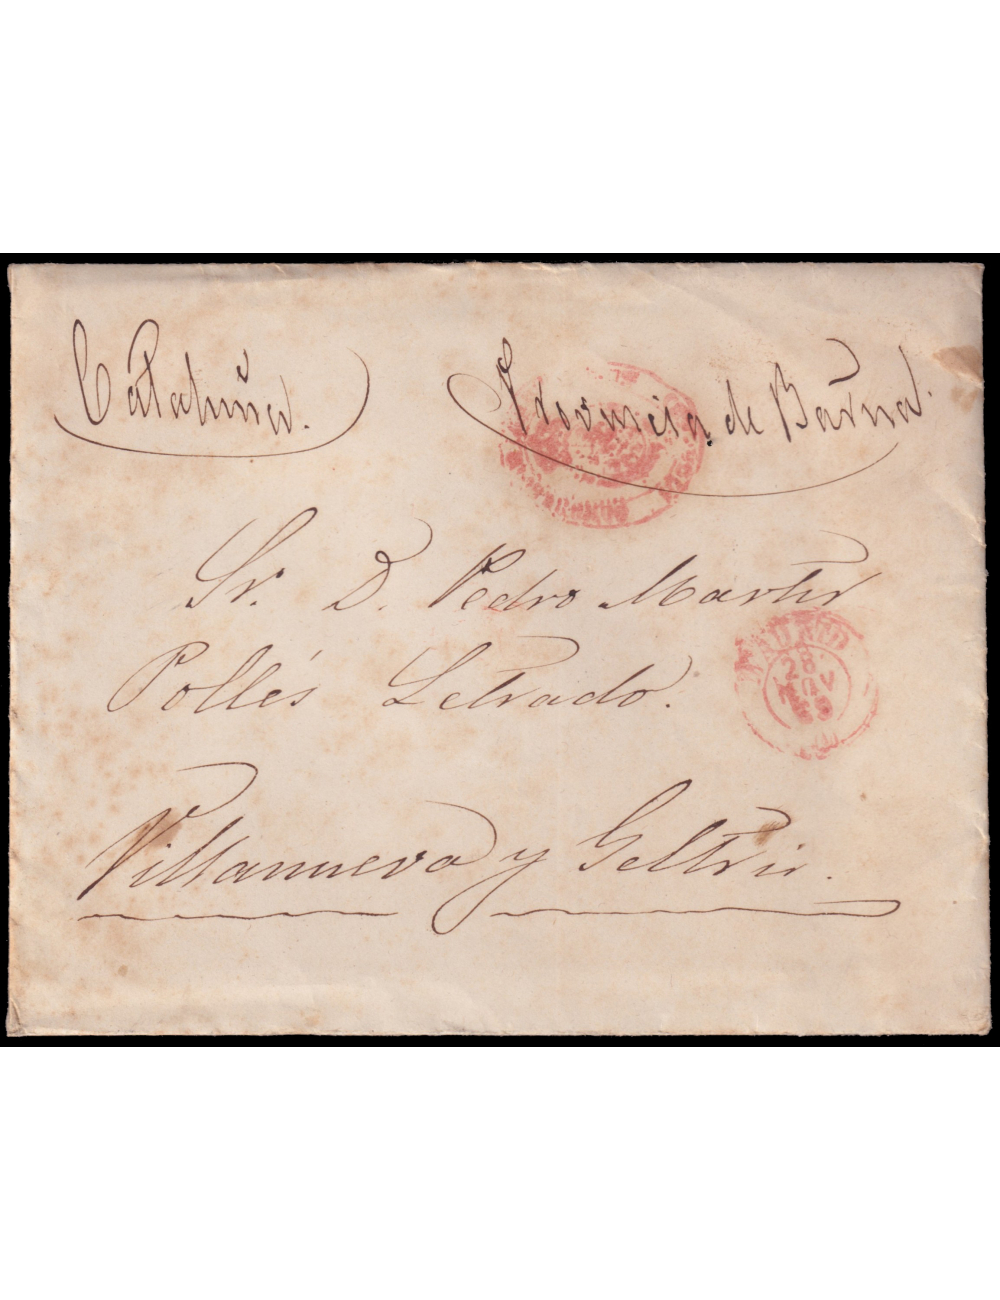 Cataluña. Provincia de Barña.
Sr. D. Pedro Martir
Pollés Letrado.
Villanueva y Geltrú.
MADRID
28
NOV